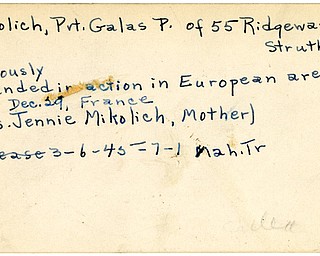 olich, Pvt. Galas P. of 55 Ridgewa
Struth
ously
unded in action in European are
Dec. 29, France
s. Jennie Mikolich, Mother)
ease 3-6-45-7-1 Mah. Tr